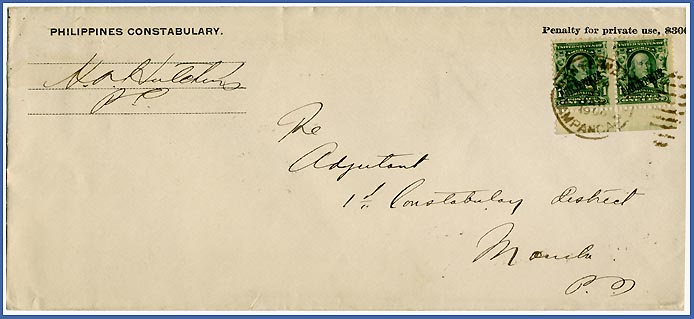 PHILIPPINES CONSTABULARY.
Penalty for private use, $300
H. A. Hutchins
P.C.
PAMPANGA
The
Adjutant
1st Constabulary District
Manila
P. I.